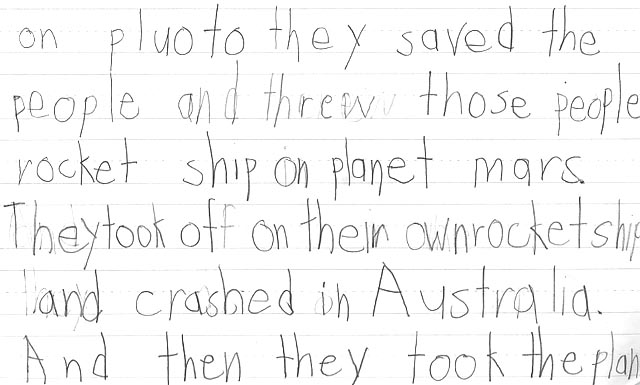 on pluoto they saved the
people and threw those people
rocket ship on planet mars.
They took off on their own rocketship
and crashed in Australia.
And then they took the plan